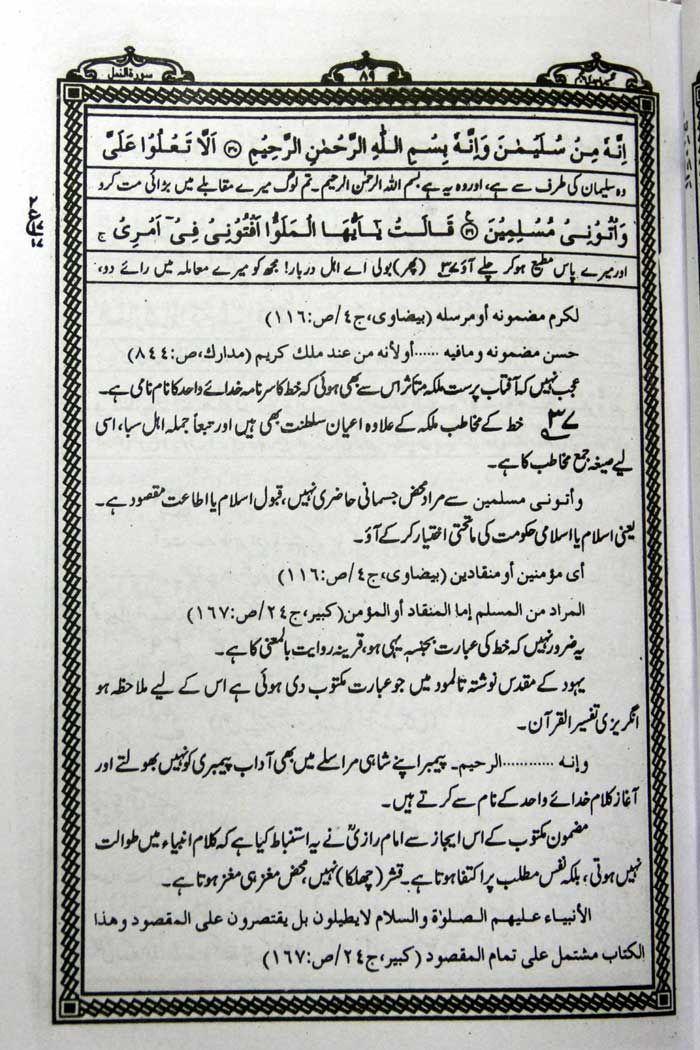 سورۃ النمل
۸۹
اِنَّهٗ مِنْ سُلَيْمٰنَ وَاِنَّهٗ بِسْمِ اللّٰهِ الرَّحْمٰنِ الرَّحِيْمِ ۞ اَلَّا تَعْلُوْا عَلَىَّ
وہ سلیمان کی طرف سے ہے، اوروہ یہ ہے بسم اللہ الرحمٰن الرحیم۔ تم لوگ میرے مقابلے میں بڑائی مت کرو
وَاْتُوْنِىْ مُسْلِمِيْنَ ۞ قَالَتْ يٰٓاَيُّهَا الْمَلَؤُا اَفْتُوْنِىْ فِىْٓ اَمْرِىْ ج
اور میرے پاس مطیع ہوکر چلے آؤ ۳۷ (پھر) بولی اے اہل دربار! مجھ کو میرے معاملہ میں رائے دو،
لكرم مضمونه أو مرسله (بيضاوى، ج٤/ص:١١٦)
حسن مضمونه ومافيه ......أو لأنه من عند ملك كريم (مدارك، ص:٨٤٤)
عجب نہیں کہ آفتاب پرست ملکہ متاثر اس سے بھی ہوئی کہ خط کا سرنامہ خدائے واحد کا نام نامی ہے۔
۳۷ خط کے مخاطب ملکہ کے علاوہ اعیان سلطنت بھی ہیں اور تبعاً جملہ اہل سبا، اسی
لیے صیغہ جمع مخاطب کا ہے۔
وأتونى مسلمين سے مراد محض جسمانی حاضری نہیں، قبول اسلام یا اطاعت مقصود ہے۔
یعنی اسلام یا اسلامی حکومت کی ماتحتی اختیار کرکے آؤ۔
أى مؤمنين أو منقادين (بيضاوى، ج٤/ص:١١٦)
المراد من المسلم إما المنقاد أو المؤمن (كبير، ج٢٤/ص:١٦٧)
یہ ضرور نہیں کہ خط کی عبارت بجنسہٖ یہی ہو، قرینہ روایت بالمعنی کا ہے۔
یہود کے مقدس نوشتہ تالمود میں جو عبارت مکتوب دی ہوئی ہے اس کے لیے ملاحظہ ہو
انگریزی تفسیر القرآن۔
وإنه ............الرحيم۔ پیمبر اپنے شاہی مراسلے میں بھی آداب پیمبری کو نہیں بھولتے اور
آغاز کلام خدائے واحد کے نام سے کرتے ہیں۔
مضمون مکتوب کے اس ایجاز سے امام رازیؒ نے یہ استنباط کیا ہے کہ کلام انبیاء میں طوالت
نہیں ہوتی، بلکہ نفس مطلب پر اکتفا ہوتا ہے۔ قشر (چھلکا) نہیں، محض مغز ہی مغز ہوتا ہے۔
الأنبياء عليهم الصلوٰة والسلام لايطيلون بل يقتصرون على المقصود وهذا
الكتاب مشتمل على تمام المقصود (كبير، ج٢٤/ص:١٦٧)